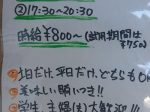 ②17:30~20:30
時給¥800~(試用期間は
¥750)
①1日だけ、平日だけ、どちらもOK
②美味しい賄いつき!!
③学生、主婦(夫)大歓迎!!!